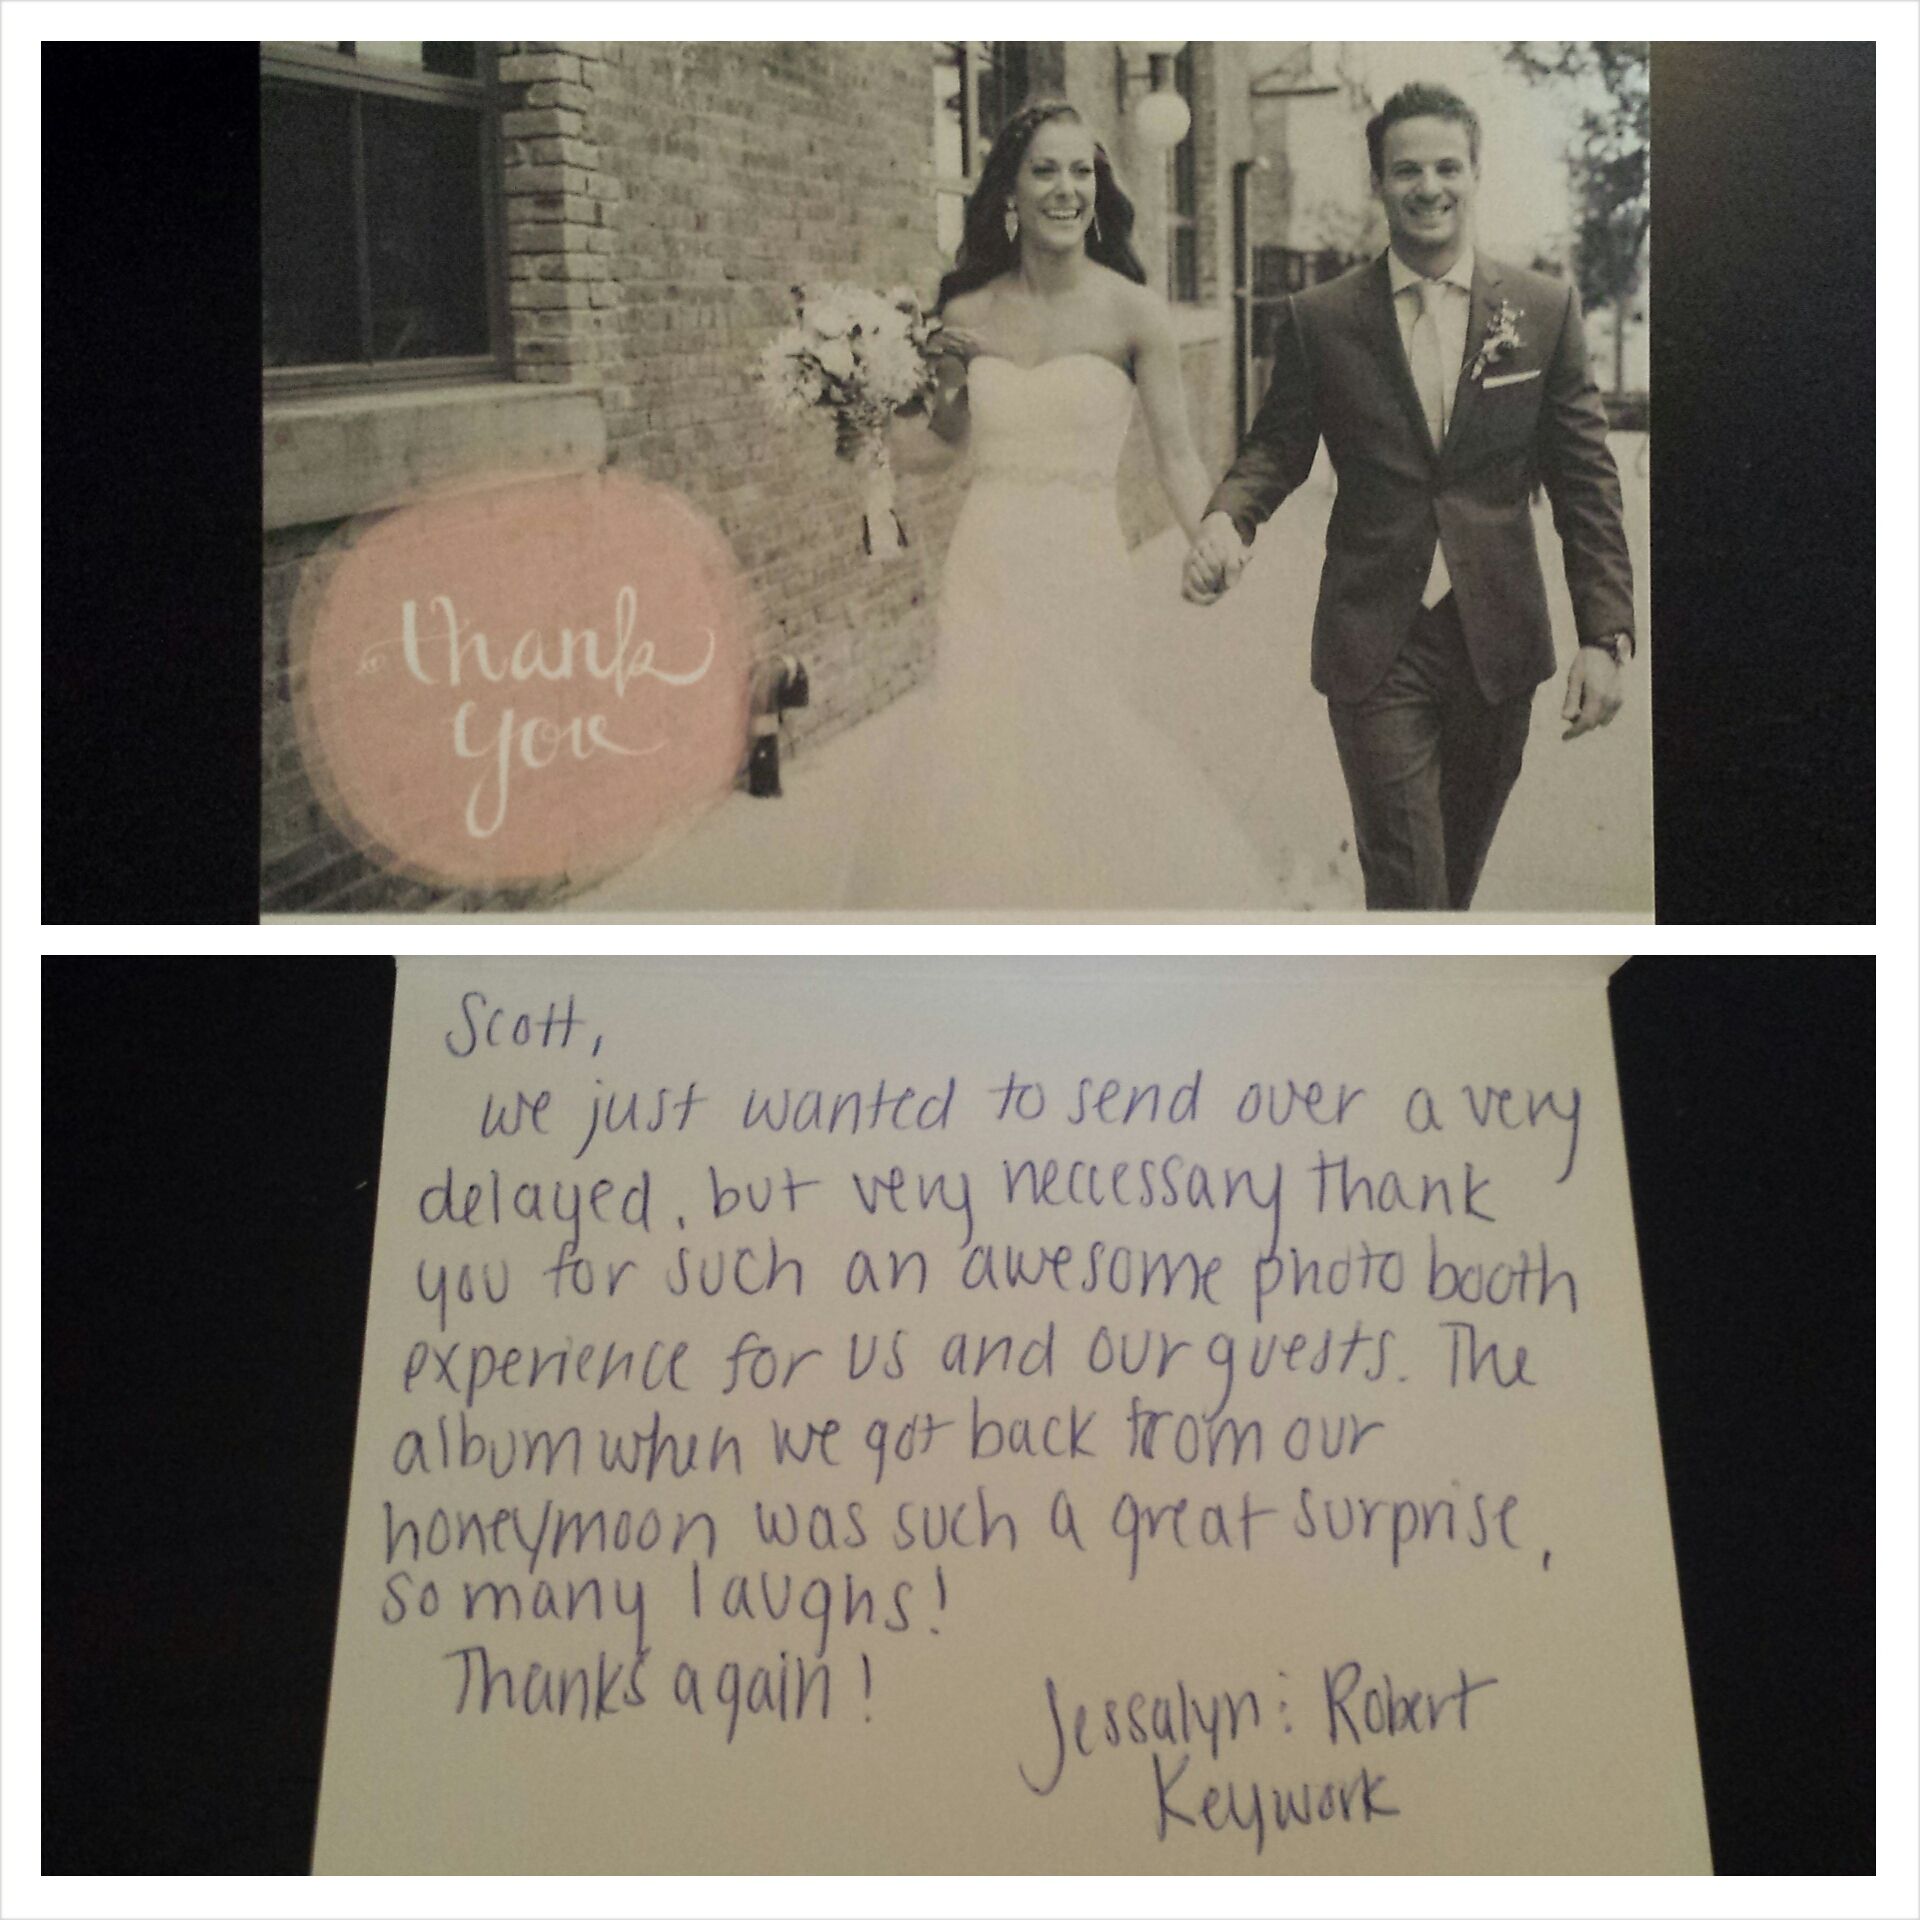 thank
you
Scott,
we just wanted to send over a very
delayed, but very neccessary thank
you for such an awesome photo booth
experience for us and our guests. The
album when we got back from our
honeymoon was such a great surprise,
so many laughs!
Thanks again!
Jessalyn : Robert
Keywork